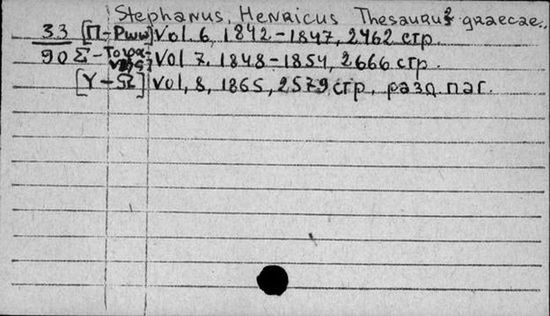 Stephanus, Henricus Thesaurus graecae..
33 [Π-Ρωω] Vol. 6, 1842-1847, 2462 стр.
90 Σ- Vol 7, 1848-1854, 2666 стр.
[Υ-Ω] Vol, 8, 1865, 2579 стр, разд. паг.